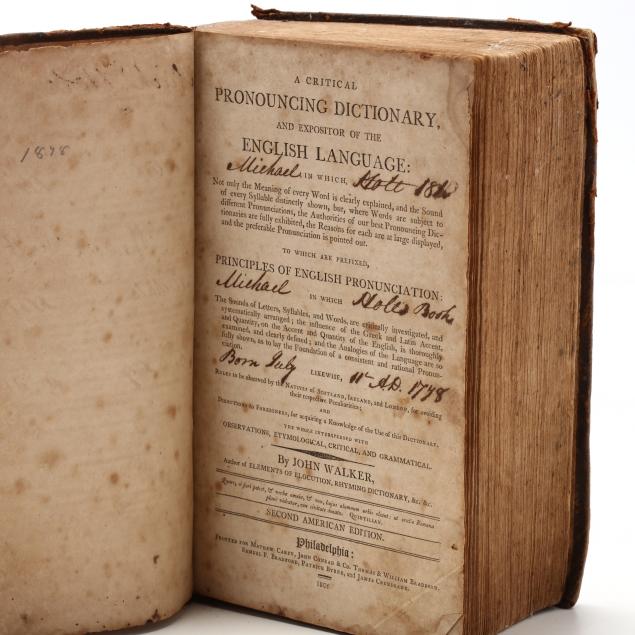 1898
A CRITICAL
PRONOUNCING DICTIONARY,
AND EXPOSITOR OF THE
ENGLISH LANGUAGE:
Michael IN WHICH, Holt
Not only the Meaning of every Word is clearly explained, and the Sound
of every Syllable distinctly shown, but, where Words are subject to
different Pronunciations, the Authorities of our best Pronouncing Dic-
tionaries are fully exhibited, the Reasons for each are at large displayed,
and the preferable Pronunciation is pointed out.
TO WHICH ARE PREFIXED,
PRINCIPLES OF ENGLISH PRONUNCIATION:
Michael IN WHICH Holts Book
The Sounds of Letters, Syllables, and Words, are critically investigated, and
systematically arranged; the influence of the Greek and Latin Accent,
and Quantity, on the Accent and Quantity of the English, is thoroughly
examined, and clearly defined; and the Analogies of the Language are so
fully shown, as to lay the Foundation of a consistent and rational Pronun-
ciation.
Born July LIKEWISE, 11th AD. 1778
RULES to be observed by the NATIVES of SCOTLAND, IRELAND, and LONDON, for avoiding
their respective Peculiarities;
AND
DIRECTIONS to FOREIGNERS, for acquiring a Knowledge of the Use of this DICTIONARY.
THE WHOLE INTERSPERSED WITH
OBSERVATIONS, ETYMOLOGICAL, CRITICAL, AND GRAMMATICAL.
By JOHN WALKER,
Author of ELEMENTS OF ELOCUTION, RHYMING DICTIONARY, &c. &c.
Quare, si fieri potest, & verba omnia, & vox, hujus alumnum urbis oleant: ut oratio Romana
plane videatur, non civitate donata. QUINTILIAN.
SECOND AMERICAN EDITION.
Philadelphia:
PRINTED FOR MATHEW CAREY, JOHN CONRAD & CO. THOMAS & WILLIAM BRADFORD,
SAMUEL F. BRADFORD, PATRICK BYRNE, and JAMES CRUKSHANK.